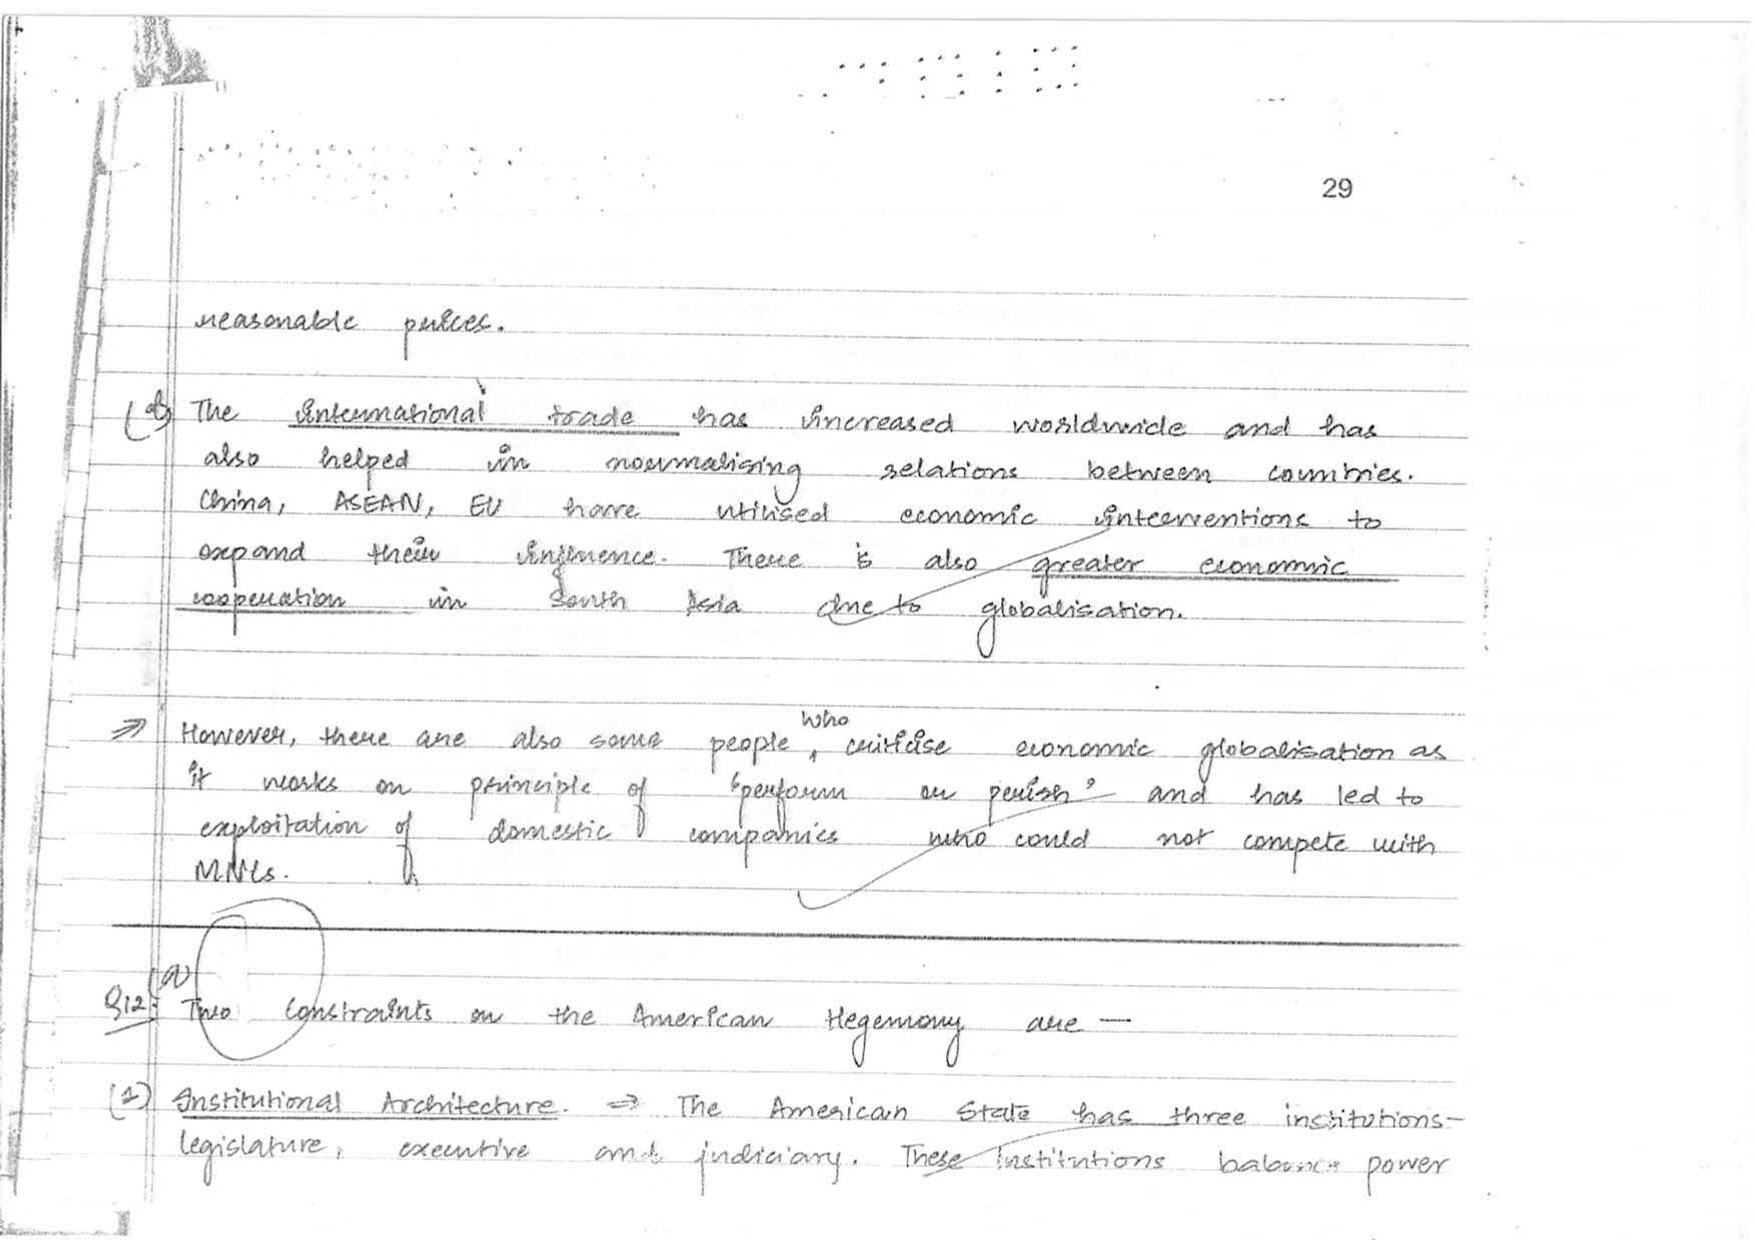 29
reasonable prices.
The international trade has increased worldwide and has
also helped in normalising relations between countries.
China, ASEAN, EU have utilised economic interventions to
expand their influence. There is also greater economic
cooperation in South Asia due to globalisation.
⇒ However, there are also some people who criticise economic globalisation as
it works on principle of 'perform or perish' and has led to
exploitation of domestic companies who could not compete with
MNCs.
(a)
Q12: Two Constraints on the American Hegemony are —
(1) Institutional Architecture. ⇒ The American State has three institutions-
legislature, executive and judiciary. These Institutions balance power